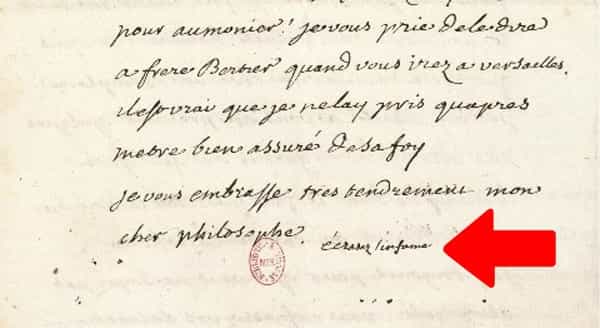 pour aumonier! je vous prie de le dire
a frere Bertier quand vous irez a versailles.
il est vrai que je ne lay pris quapres
metre bien assuré de sa foy
je vous embrasse tres tendrement mon
cher philosophe. écrasez l'infame